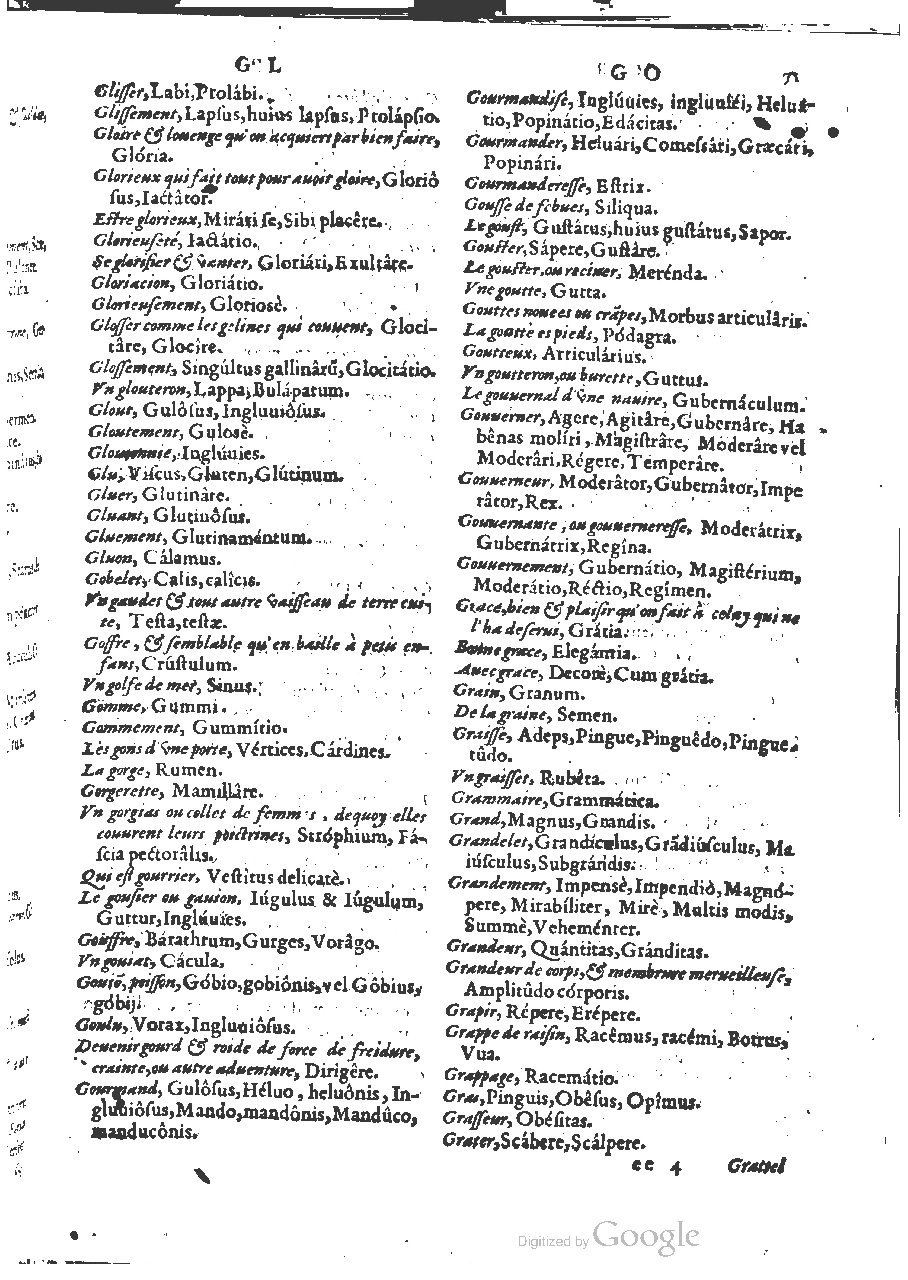 G L
Gliſſer, Labi, Prolábi.
Gliſſement, Lapſus, huius lapſus, Prolápſio.
Gloire & louenge qu'on acquiert par bien faire,
Glória.
Glorieux qui fait tout pour auoir gloire, Gloriô
ſus, Iactâtor.
Eſtre glorieux, Mirári ſe, Sibi placêre.
Glorieuſeté, Iactátio.
Se glorifier & vanter, Gloriári, Exultâre.
Gloriacion, Gloriátio.
Glorieuſement, Glorioſè.
Gloſſer comme les gelines qui couuent, Gloci-
târe, Glocîre.
Gloſſement, Singúltus gallinârũ, Glocitátio.
Vn glouteron, Lappa, Bulápatum.
Glout, Gulôſus, Ingluuiôſus.
Gloutement, Guloſè.
Gloutonnie, Inglúuies.
Glu, Viſcus, Gluten, Glútinum.
Gluer, Glutinâre.
Gluant, Glutinôſus.
Gluement, Glutinaméntum.
Gluon, Cálamus.
Gobelet, Calis, calîcis.
Vn gaudet & tout autre vaiſſeau de terre cui-
te, Teſta, teſtæ.
Goffre, & ſemblable qu'en baille à petis en-
fans, Crúſtulum.
Vn golfe de mer, Sinus.
Gomme, Gummi.
Gommement, Gummítio.
Les gons d'vne porte, Vértices, Cárdines.
La gorge, Rumen.
Gorgerette, Mamillâre.
Vn gorgias ou collet de femmes, dequoy elles
couurent leurs poictrines, Stróphium, Fá-
ſcia pectorâlis.
Qui eſt gourrier, Veſtitus delicatè.
Le gouſier ou gauion, Iúgulus & Iúgulum,
Guttur, Inglúuies.
Gouffre, Bárathrum, Gurges, Vorâgo.
Vn gouiat, Cácula.
Gouiō, poiſſon, Góbio, gobiônis, vel Gôbius,
gôbij.
Goulu, Vorax, Ingluuiôſus.
Deuenir gourd & roide de force de freidure,
crainte, ou autre aduenture, Dirigêre.
Gourmand, Gulôſus, Héluo, heluônis, In-
gluuiôſus, Mando, mandônis, Mandûco,
manducônis.
G O 71
Gourmandiſe, Inglúuies, ingluuiéi, Heluá-
tio, Popinátio, Edácitas.
Gourmander, Heluári, Comeſſáti, Græcári,
Popinári.
Gourmandereſſe, Eſtrix.
Gouſſe de febues, Siliqua.
Le gouſt, Guſtátus, huius guſtátus, Sapor.
Gouſter, Sápere, Guſtâre.
Le gouſter, ou reciner, Merénda.
Vne goutte, Gutta.
Gouttes nouees ou crãpes, Morbus articulâris.
La goutte es pieds, Pódagra.
Goutteux, Articulárius.
Vn goutteron, ou burette, Guttus.
Le gouuernal d'vne nauire, Gubernáculum.
Gouuerner, Agere, Agitâre, Gubernâre, Ha
bênas molíri, Magiſtrâre, Moderâre vel
Moderâri, Régere, Temperâre.
Gouuerneur, Moderâtor, Gubernâtor, Impe
râtor, Rex.
Gouuernante, ou gouuernereſſe, Moderátrix,
Gubernátrix, Regína.
Gouuernement, Gubernátio, Magiſtérium,
Moderátio, Réctio, Regímen.
Grace, bien & plaiſir qu'on fait à celuy qui ne
l'ha deſerui, Grátia.
Bonne grace, Elegámia.
Auec grace, Decorè, Cum grátia.
Grain, Granum.
De la graine, Semen.
Graiſſe, Adeps, Pingue, Pinguêdo, Pingue-
tûdo.
Vn graiſſet, Rubéta.
Grammaire, Grammática.
Grand, Magnus, Grandis.
Grandelet, Grandículus, Grãdiúſculus, Ma
iúſculus, Subgrándis.
Grandement, Impensè, Impendiò, Magnó-
pere, Mirabíliter, Mirè, Multis modis,
Summè, Veheménter.
Grandeur, Quántitas, Gránditas.
Grandeur de corps, & membrure merueilleuſe,
Amplitûdo córporis.
Grapir, Répere, Erépere.
Grappe de raiſin, Racêmus, racémi, Botrus,
Vua.
Grappage, Racemátio.
Gras, Pinguis, Obêſus, Opîmus.
Graſſeur, Obéſitas.
Grater, Scábere, Scálpere.
ee 4 Grattel
Digitized by Google